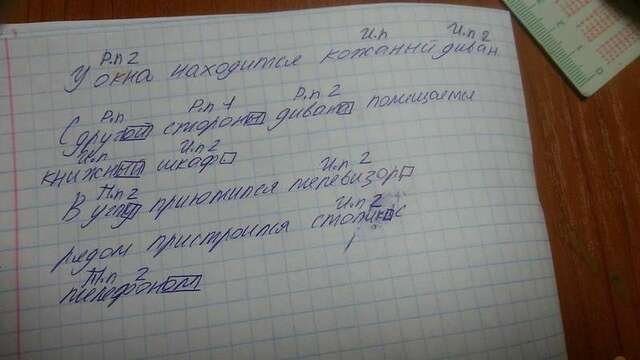 Р.п 2 И.п И.п 2
У окна находится кожанный диван
Р.п Р.п 1 Р.п 2
С другой стороны дивана помещаетя
И.п И.п 2
книжный шкаф
П.п 2 И.п 2
В углу приютился телевизор
И.п 2
рядом пристроился столик с
Т.п 2
телефоном